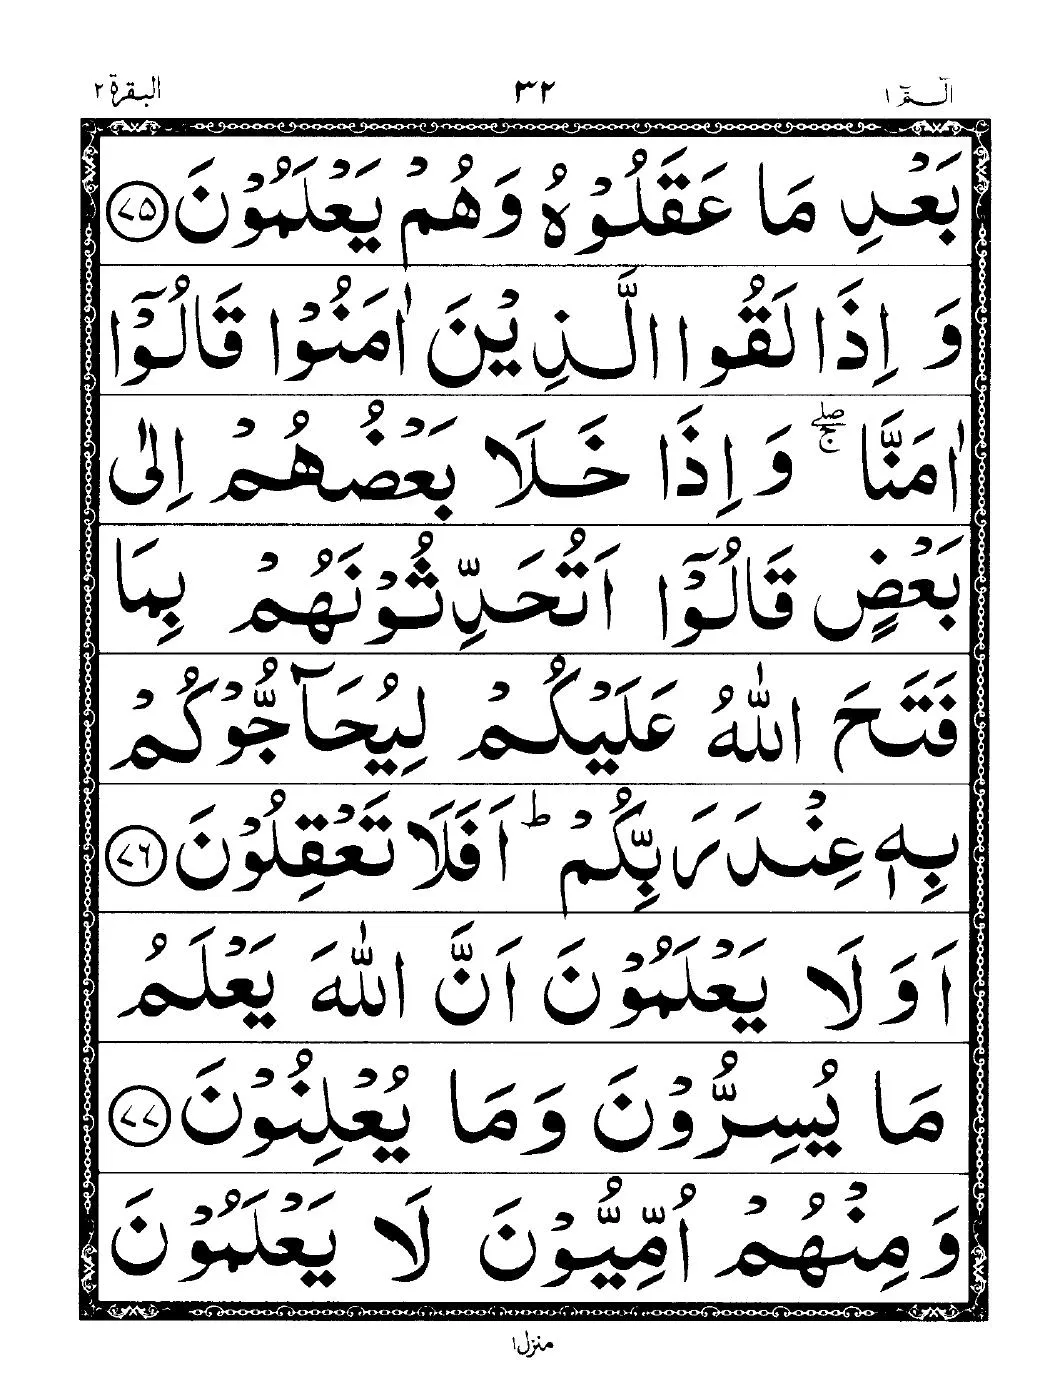 الٓـمّٓ ١ ٣٢ البقرة ٢
بَعْدِ مَا عَقَلُوْهُ وَهُمْ يَعْلَمُوْنَ ﴿٧٥﴾
وَ اِذَا لَقُوا الَّذِيْنَ اٰمَنُوْا قَالُوْۤا
اٰمَنَّا ۖۚ وَ اِذَا خَلَا بَعْضُهُمْ اِلٰى
بَعْضٍ قَالُوْۤا اَتُحَدِّثُوْنَهُمْ بِمَا
فَتَحَ اللّٰهُ عَلَيْكُمْ لِيُحَآجُّوْكُمْ
بِهٖ عِنْدَ رَبِّكُمْ ؕ اَفَلَا تَعْقِلُوْنَ ﴿٧٦﴾
اَوَ لَا يَعْلَمُوْنَ اَنَّ اللّٰهَ يَعْلَمُ
مَا يُسِرُّوْنَ وَمَا يُعْلِنُوْنَ ﴿٧٧﴾
وَمِنْهُمْ اُمِّيُّوْنَ لَا يَعْلَمُوْنَ
منزل ١